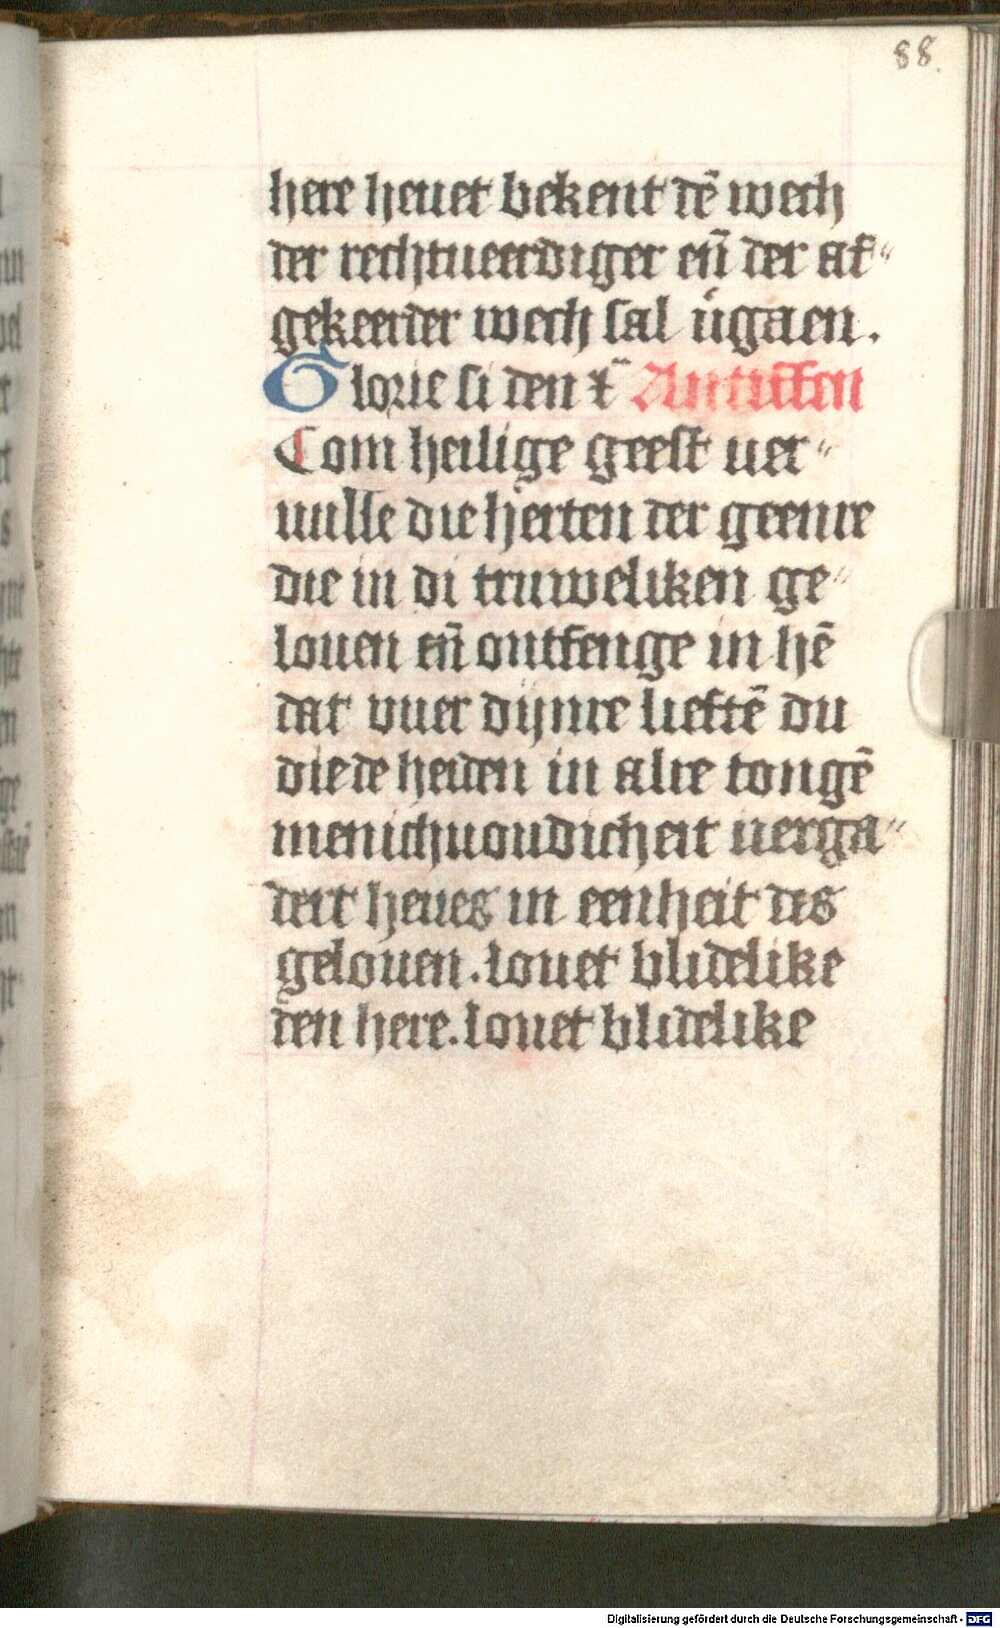 88.
here heuet bekent dē wech
der rechtueerdiger eñ der af"
gekeerder wech sal u̇gaen.
Glorie si den x̄ Antiffen
Com heilige geest uer"
uulle die herten der geenre
die in di truweliken ge"
louen eñ ontfenge in hē
dat vuer dijnre lieftē du
die de heiden in alre tongē
menichuoudicheit uerga"
dert heues in eenheit des
gelouen. louet blidelike
den here. louet blidelike
Digitalisierung gefördert durch die Deutsche Forschungsgemeinschaft - DFG